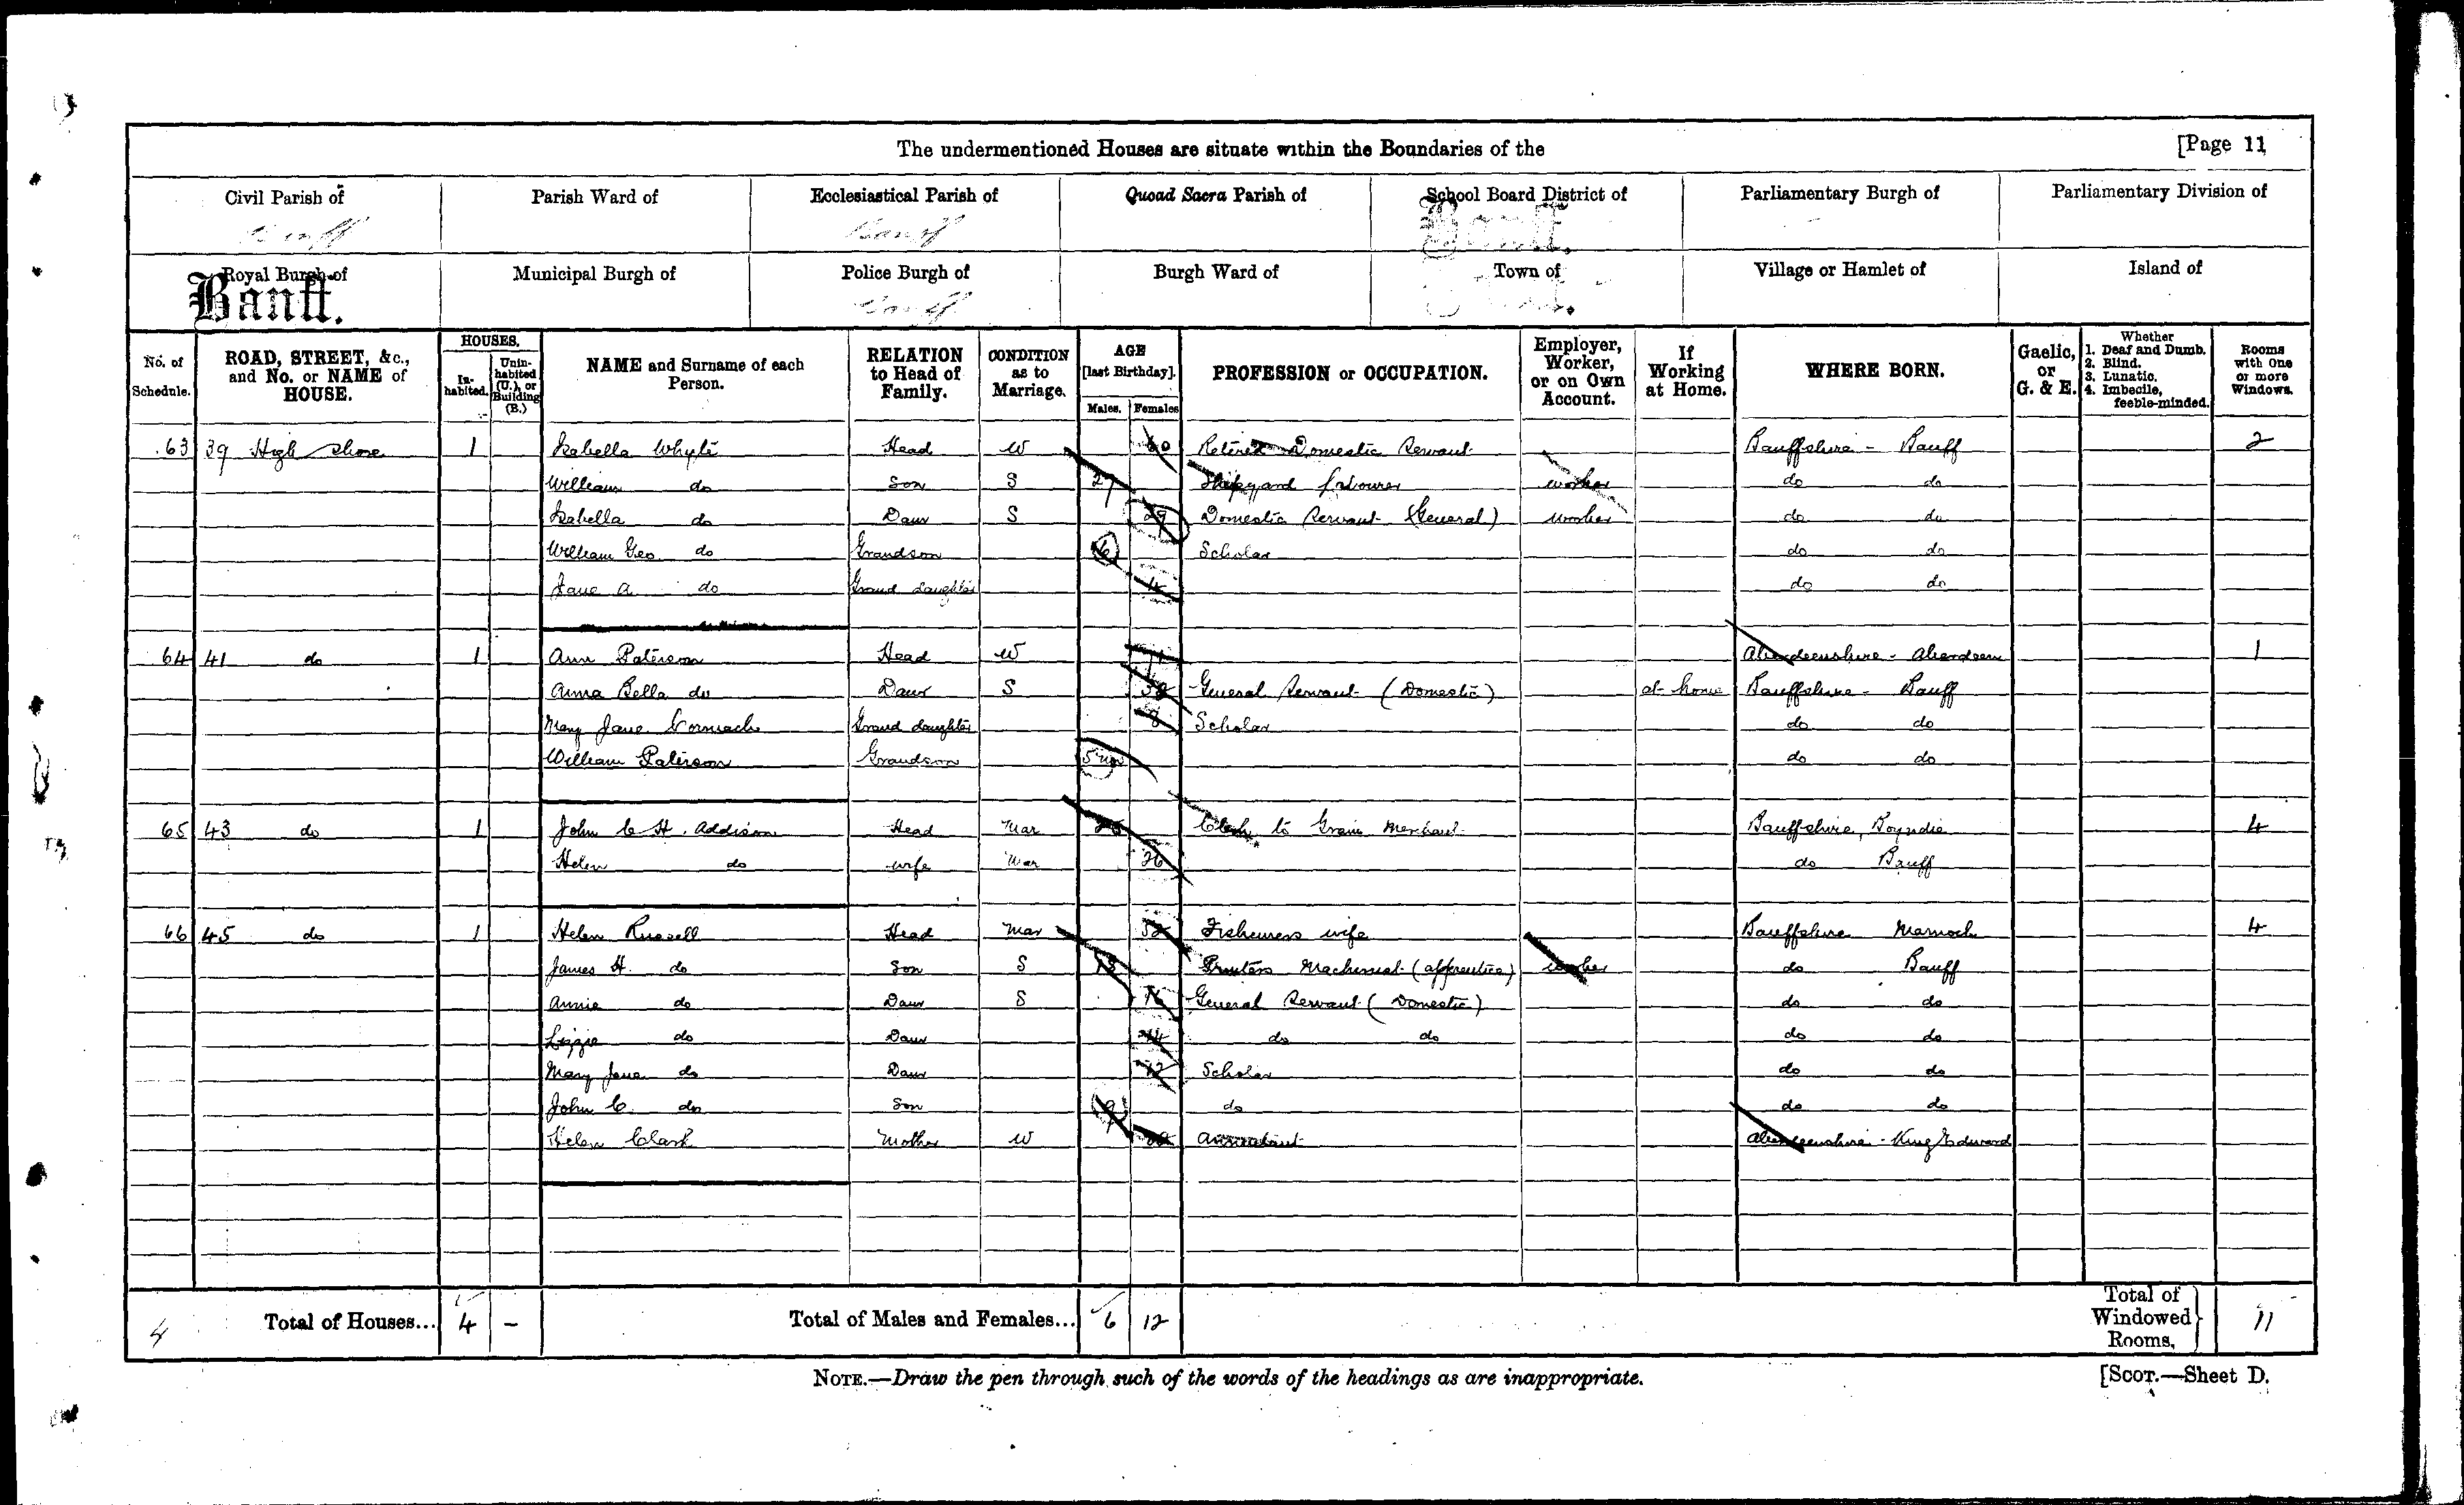 The undermentioned Houses are situate within the Boundaries of the [Page 11
Civil Parish of Parish Ward of Ecclesiastical Parish of Quoad Sacra Parish of School Board District of Parliamentary Burgh of Parliamentary Division of
Banff Banff Banff.
Royal Burgh of Municipal Burgh of Police Burgh of Burgh Ward of Town of Village or Hamlet of Island of
Banff. Banff
No. of Schedule. ROAD, STREET, &c., and No. or NAME of HOUSE. HOUSES. In-habited. Unin-habited (U.), or Building (B.) NAME and Surname of each Person. RELATION to Head of Family. CONDITION as to Marriage. AGE [last Birthday]. Males. Females PROFESSION or OCCUPATION. Employer, Worker, or on Own Account. If Working at Home. WHERE BORN. Gaelic, or G. & E. Whether 1. Deaf and Dumb. 2. Blind. 3. Lunatic. 4. Imbecile, feeble-minded. Rooms with One or more Windows.
63 39 High Shore 1 Isabella Whyte Head W 60 Retired Domestic Servant Banffshire - Banff 2
William do Son S 27 Shipyard Labourer worker do do
Isabella do Daur S 29 Domestic Servant (General) worker do do
William Geo do Grandson 6 Scholar do do
Jane A do Grand daughter 4 do do
64 41 do 1 Ann Paterson Head W 71 Aberdeenshire - Aberdeen 1
Anna Bella do Daur S General Servant (Domestic) at home Banffshire - Banff
Mary Jane Cormack Grand daughter 8 Scholar do do
William Paterson Grandson 5 mo do do
65 43 do 1 John C H. Addison Head Mar 26 Clerk to Grain Merchant Banffshire, Boyndie 4
Helen do wife Mar 26 do Banff
66 45 do 1 Helen Russell Head Mar 52 Fishermans wife Banffshire Marnoch 4
James H. do Son S 18 Printers Machinist (apprentice) worker do Banff
Annie do Daur S 16 General Servant (Domestic) do do
Lizzie do Daur 14 do do do do
Mary Jane do Daur 12 Scholar do do
John C. do Son 9 do do do
Helen Clark Mother W Annuitant Aberdeenshire - King Edward
4 Total of Houses... 4 - Total of Males and Females... 6 12 Total of Windowed Rooms, 11
NOTE.—Draw the pen through such of the words of the headings as are inappropriate. [SCOT.—Sheet D.